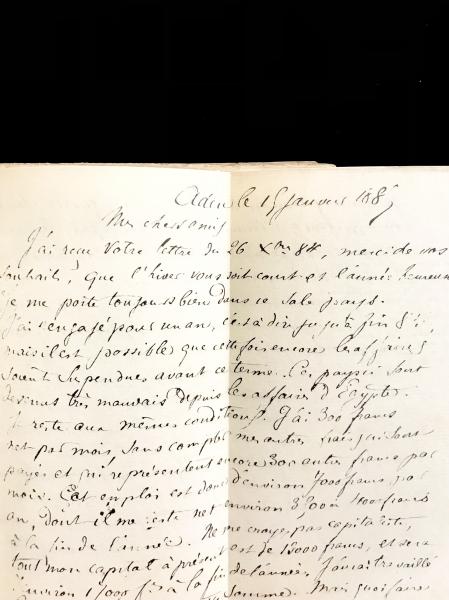 Aden le 15 Janvier 1885
Mes chers amis
J'ai reçu votre lettre du 26 Xbre 84, merci de vos
souhaits, que l'hiver vous soit court et l'année heureuse
Je me porte toujours bien dans ce sale pays.
J'ai rengagé pour un an, c'est à dire jusqu'à fin 85,
mais il est possible que cette fois encore les affaires
soient suspendues avant ce terme. Ces pays ci sont
devenus très mauvais depuis les affaires d'Egypte.
Je reste aux mêmes conditions. J'ai 300 francs
net par mois, sans compter mes autres frais qui sont
payés et qui représentent encore 300 autres francs par
mois. Cet emploi est donc d'environ 7000 francs par
an, dont il me reste net environ 3500 à 4000 francs
à la fin de l'année. Ne me croyez pas capitaliste,
tout mon capital à présent est de 13000 francs, et sera
d'environ 17000 frs à la fin de l'année. J'aurai travaillé
somme. Mais quoi faire